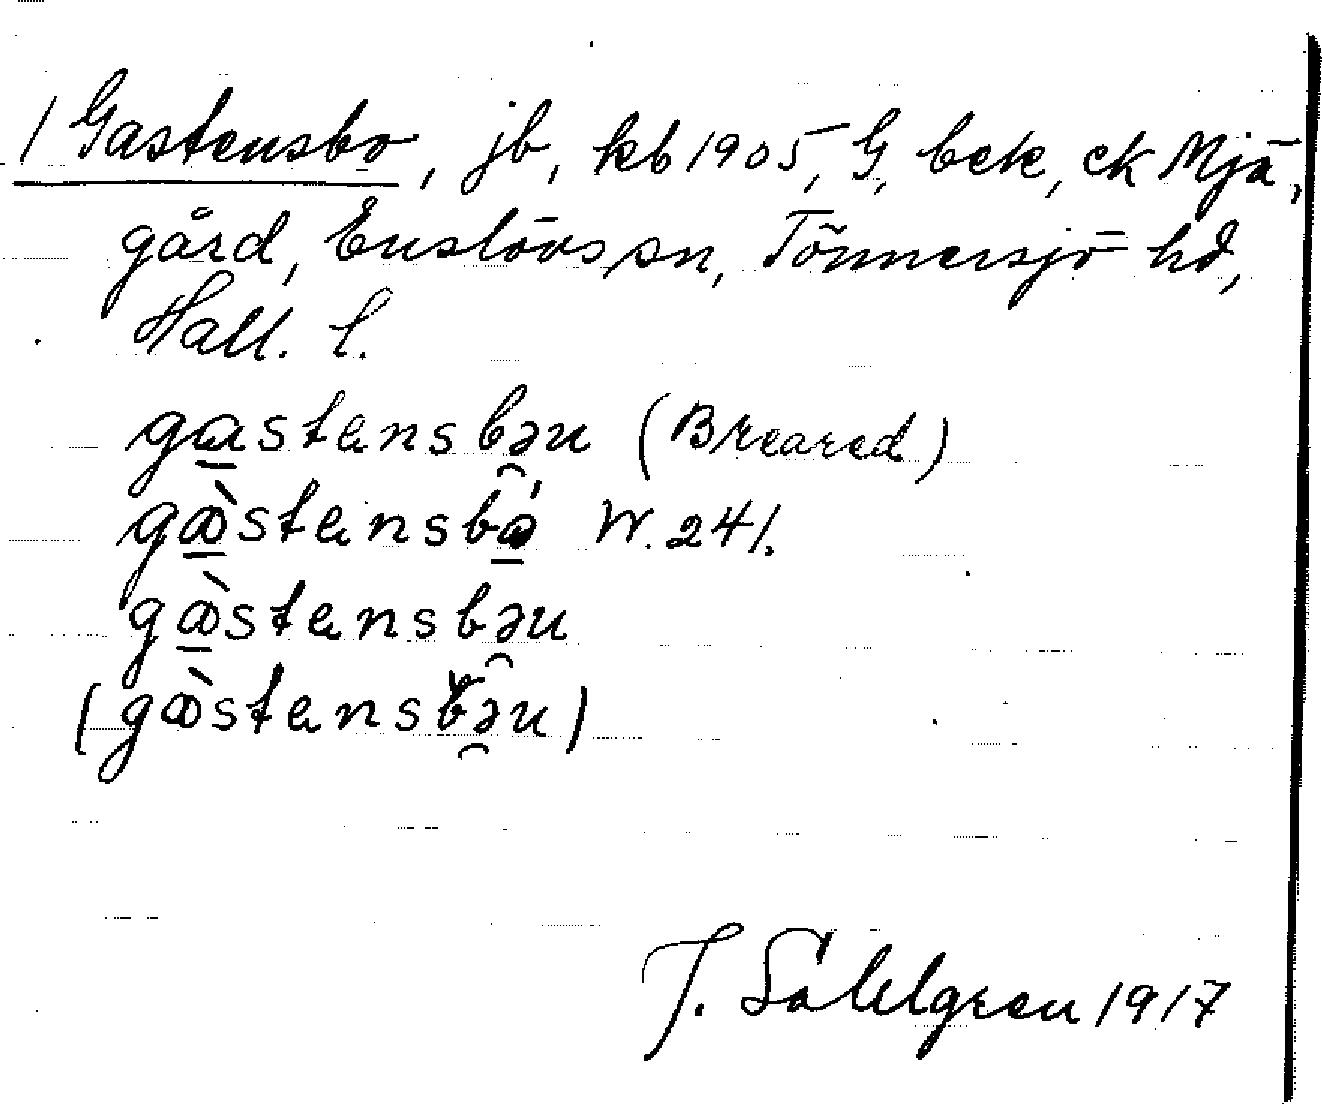 1 Gastensbo, jb, kb 1905, G, bek, ek Mjä,
gård, Enslövs sn, Tönnersjö hd,
Hall. l.
gastensbəu (Breared)
gàstensbó W. 241.
gàstensbəu
(gàstensbəu)
J. Sahlgren 1917